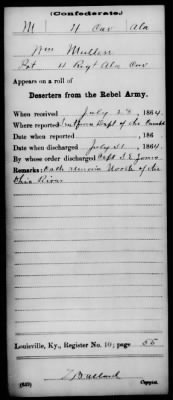 (Confederate.)
M 4 Cav Ala
Wm Mullen
Pvt 4 Regt Ala Cav
Appears on a roll of
Deserters from the Rebel Army.
When received July 28, 1864
Where reported Dept of the Cumbd
Date when reported , 186
Date when discharged July 31, 1864
By whose order discharged Capt S. E. Jones
Remarks: Oath remain North of the
Ohio River
Louisville, Ky., Register No. 10; page 55
(639) Copyist.